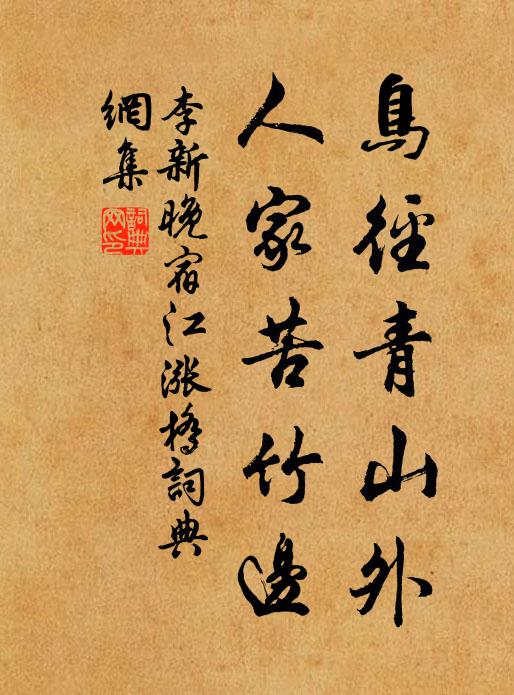 鳥徑青山外
人家苦竹邊
李新晚宿江漲橋詞典
網集
詞典
网印